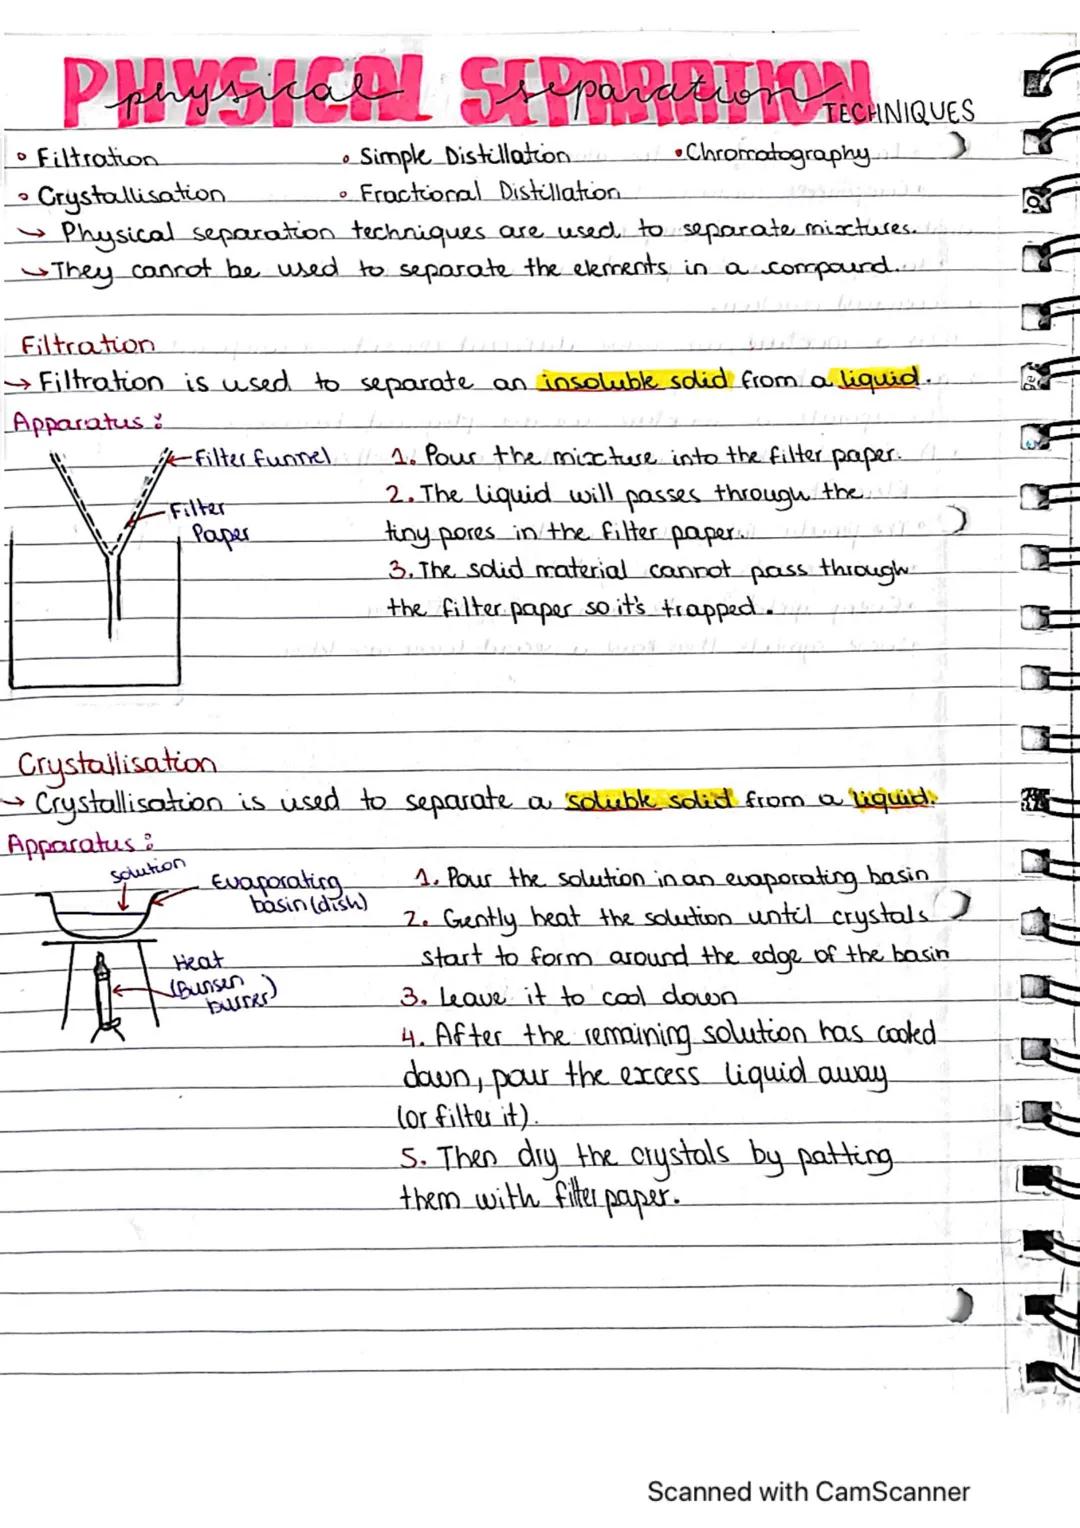 PHYSICAL SEPARATION
physical separation TECHNIQUES
• Filtration • Simple Distillation • Chromatography
• Crystallisation • Fractional Distillation
→ Physical separation techniques are used to separate mixtures.
→ They cannot be used to separate the elements in a compound.
Filtration
→ Filtration is used to separate an insoluble solid from a liquid.
Apparatus:
Filter funnel
Filter
Paper
1. Pour the mixture into the filter paper.
2. The liquid will passes through the
tiny pores in the filter paper.
3. The solid material cannot pass through
the filter paper so it's trapped.
Crystallisation
→ Crystallisation is used to separate a soluble solid from a liquid.
Apparatus:
solution
Evaporating
basin (dish)
Heat
(Bunsen
burner)
1. Pour the solution in an evaporating basin
2. Gently heat the solution until crystals
start to form around the edge of the basin
3. Leave it to cool down
4. After the remaining solution has cooled
down, pour the excess liquid away
(or filter it).
5. Then dry the crystals by patting
them with filter paper.
Scanned with CamScanner